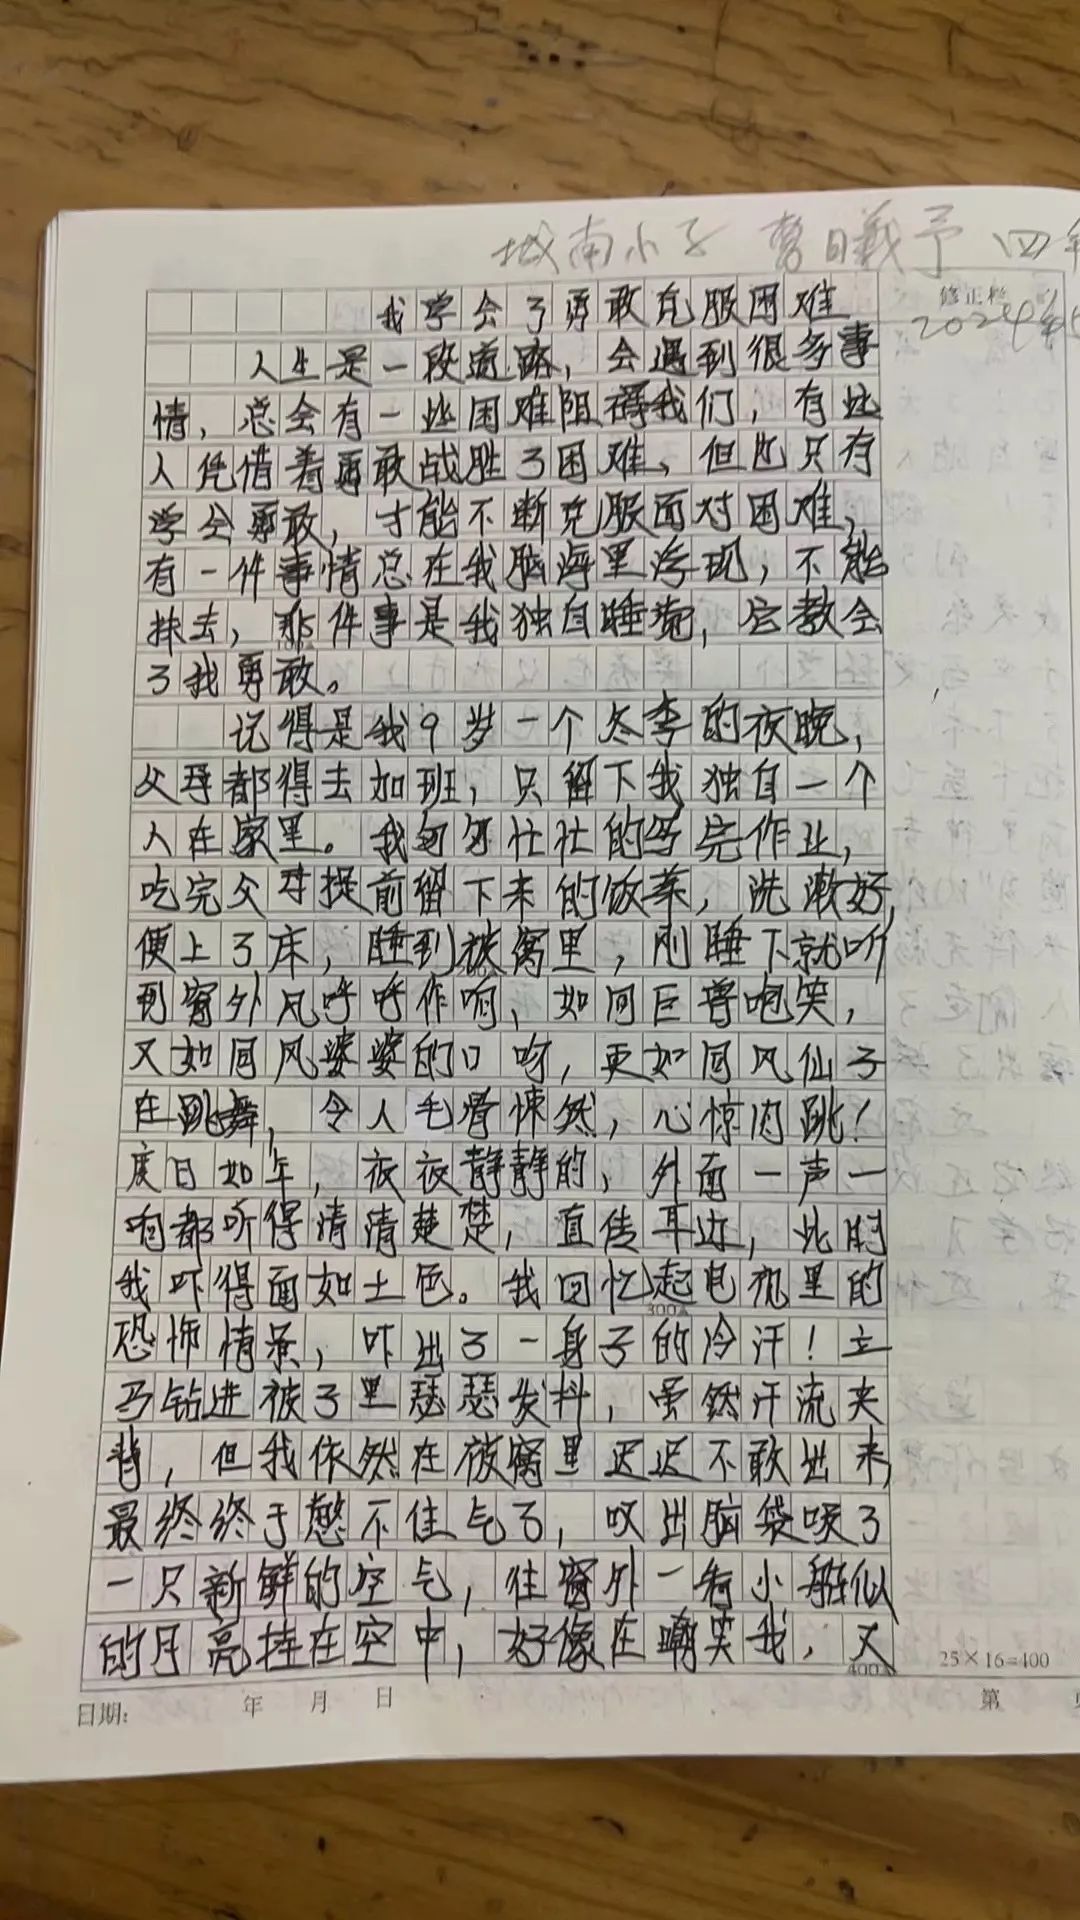 城南小子 曹曦予 四年
修正栏
我学会了勇敢克服困难
人生是一段道路，会遇到很多事
情，总会有一些困难阻碍我们，有些
人凭借着勇敢战胜了困难，但也只有
学会勇敢，才能不断克服面对困难，
有一件事情总在我脑海里浮现，不能
抹去，那件事是我独自睡觉，它教会
了我勇敢。
记得是我9岁一个冬季的夜晚，
父母都得去加班，只留下我独自一个
人在家里。我匆匆忙忙的写完作业，
吃完父母提前留下来的饭菜，洗漱好，
便上了床，睡到被窝里，刚睡下就听
到窗外风呼呼作响，如同巨兽咆笑，
又如同风婆婆的口哨，更如同风仙子
在跳舞，令人毛骨悚然，心惊肉跳！
度日如年，夜夜静静的，外面一声一
响都听得清清楚楚，直传耳边，此时
我吓得面如土色。我回忆起电视里的
300
恐怖情景，吓出了一身子的冷汗！立
马钻进被子里瑟瑟发抖，虽然汗流夹
背，但我依然在被窝里迟迟不敢出来，
最终终于憋不住气了，叹出脑袋吸了
一只新鲜的空气，往窗外一看小船似
的月亮挂在空中，好像在嘲笑我，又
400
25×16=400
日期： 年 月 日
第